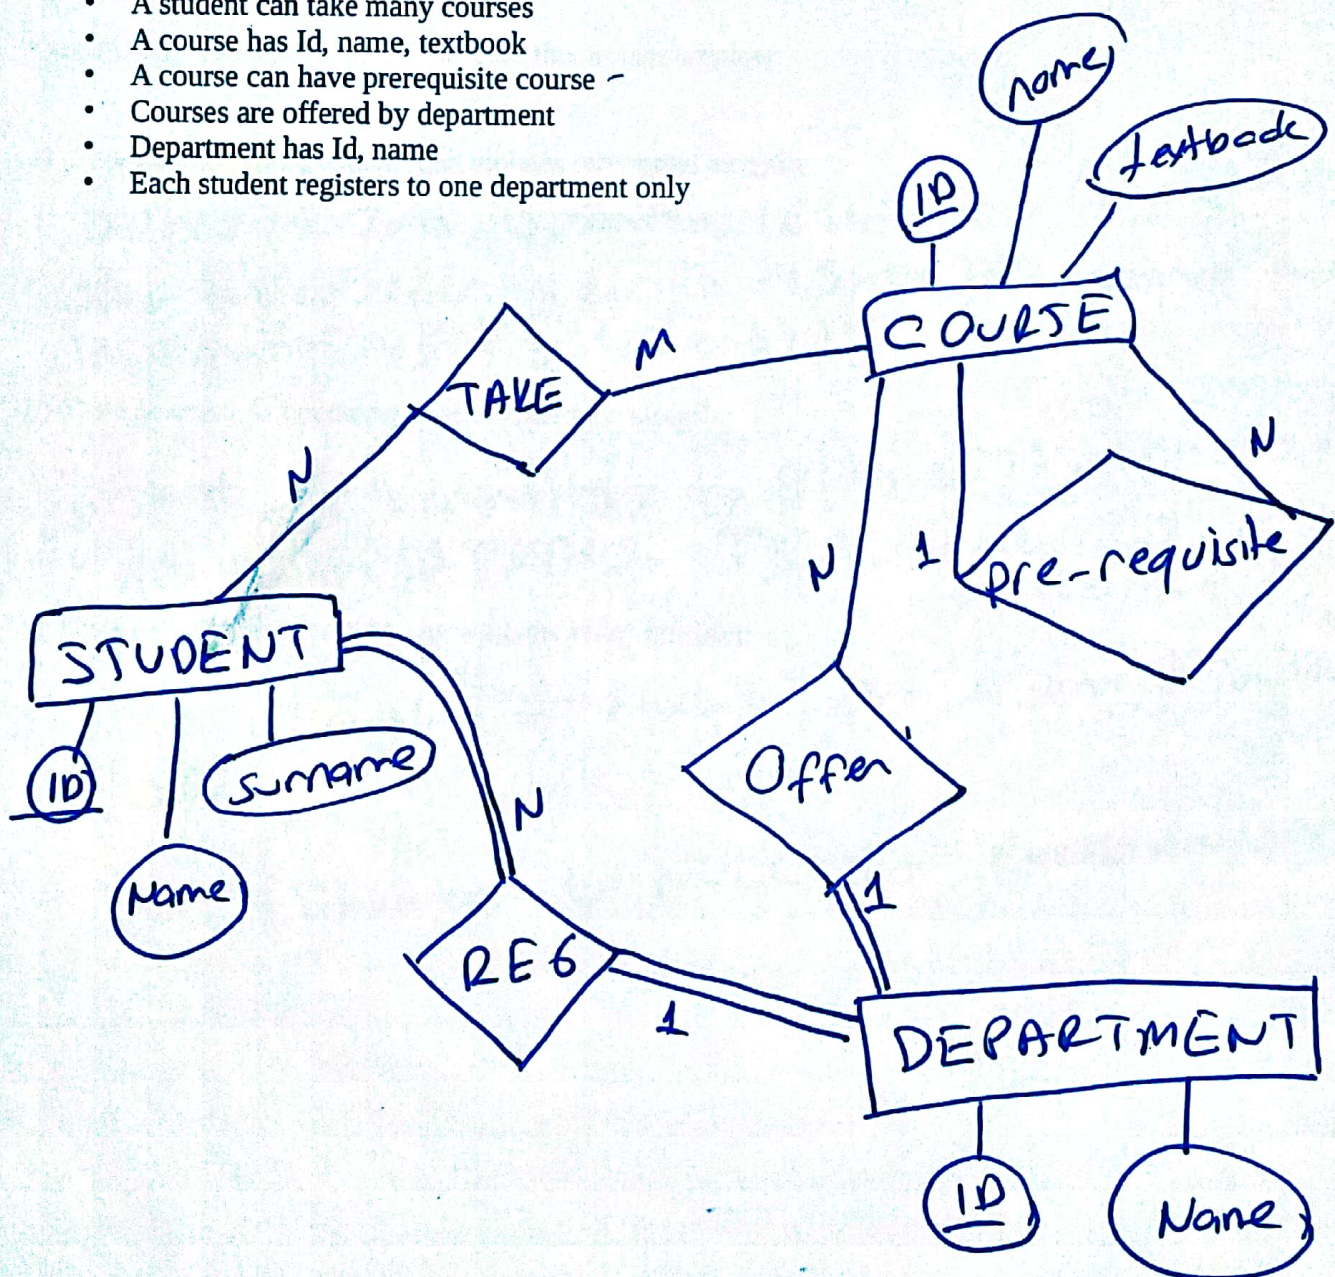 • A student can take many courses
• A course has Id, name, textbook
• A course can have prerequisite course
• Courses are offered by department
• Department has Id, name
• Each student registers to one department only
name
textbook
ID
COURSE
TAKE
M
N
N
N
1
pre-requisite
STUDENT
ID
surname
Name
Offer
N
1
REG
1
DEPARTMENT
ID
Name